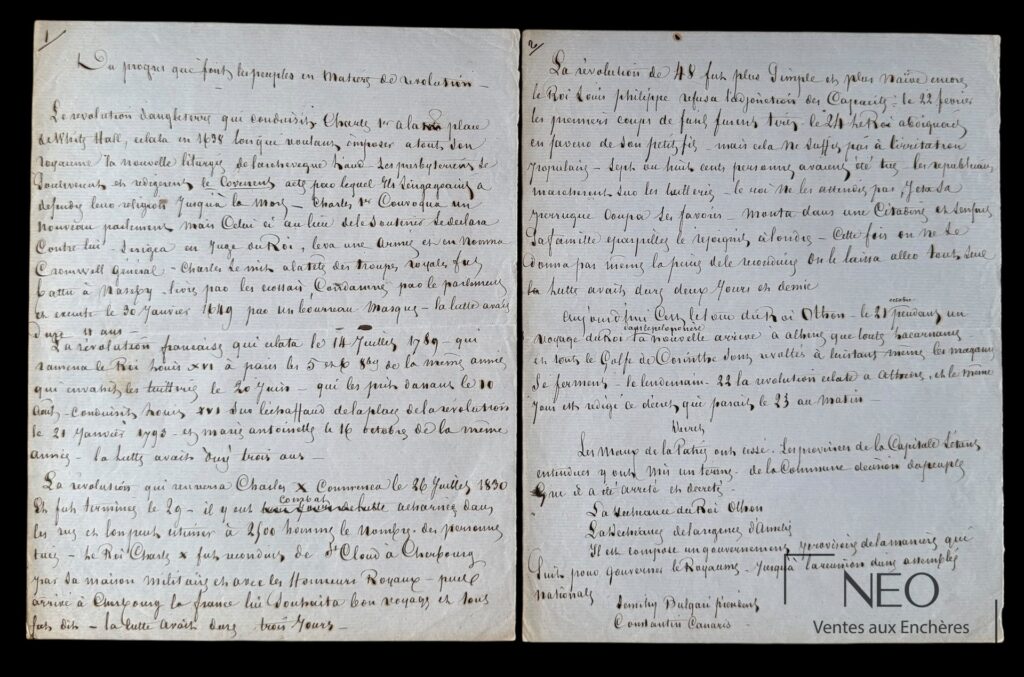 1/
Du progrès que font les peuples en matière de révolution
La révolution d'angleterre qui conduisit Charles 1er à la place
de White Hall, eclata en 1638 lorsque voulant imposer à tout son
royaume la nouvelle liturgie de l'archeveque Laud - Les presbyteriens se
souleverent et redigerent le Covenent acte par lequel ils s'engageaient à
defendre leur religion jusqu'à la mort - Charles 1er Convoqua un
nouveau parlement mais Celui ci au lieu de le soutenir se declara
Contre lui - s'erigea en juge du Roi, leva une armée et en nomma
Cromwell général - Charles se mit à la tête des troupes royales fut
battu à Naseby - livré par les ecossais, Condamné par le parlement
et executé le 30 Janvier 1649 par un bourreau masqué - la lutte avait
duré 11 ans -
La révolution française qui eclata le 14 Juillet 1789 - qui
ramena le Roi Louis XVI à paris les 5 et 6 8bre de la même année
qui envahit les tuileries le 20 Juin - qui les prit d'assaut le 10
Aout - Conduisit Louis XVI sur l'échaffaud de la place de la révolution
le 21 Janvier 1793 - et marie antoinette le 16 octobre de la même
année - la lutte avait duré trois ans -
La révolution qui renversa Charles X Commenca le 26 Juillet 1830
et fut terminée le 29 - il y eut Combat acharnée dans
les rues et l'on peut estimer à 2500 hommes le nombre des personnes
tuées - Le Roi Charles X fut reconduit de St Cloud à Cherbourg
par sa maison militaire et avec les Honneurs Royaux - puis
arrivé à Cherbourg la france lui souhaita bon voyage et tout
fut dit - la lutte avait duré trois jours -
2/
La révolution de 48 fut plus simple et plus naïve encore
le Roi Louis philippe refusa l'adjonction des Capacités : le 22 fevrier
les premiers coups de fusil furent tirés - le 24 Le Roi abdiquait
en faveur de son petit fils - mais cela ne suffit pas à l'irritation
populaire - sept ou huit cents personnes avaient été tués - les republicains
marcherent sur les tuilleries - le roi ne les attendit pas, jeta sa
perruque coupa ses favoris - monta dans une Citadine et s'enfuit
Sa famille eparpillée le rejoignit à londres - Cette fois on ne se
donna pas même la peine de le reconduire on le laissa aller tout seul
la lutte avait duré deux jours et demie
Aujourd'hui C'est le tour du Roi Othon - le 21 octobre pendant un
voyage du Roi dans le peloponèse la nouvelle arrive à athène que toute l'acarnanie
et tout le Golfe de Corinthe sont revoltés à l'instant même les magasins
se ferment - le lendemain 22 la revolution eclate à Athènes, et le même
jour est redigé ce décret qui parait le 23 au matin -
Decret
Les Maux de la Patrie ont cessé. Les provinces de la Capitale s'étant
entendues y ont mis un terme - de la Commune decision du peuple
Que il a été arreté et decreté -
La decheance du Roi Othon
La decheance de la regence d'Amelie
Il est composé un gouvernement provisoire de la maniere que
suit pour gouverner le Royaume - jusqu'à la reunion d'une assemblée
nationale
Bulgari President
Constantin Canaris -
NEO
Ventes aux Enchères